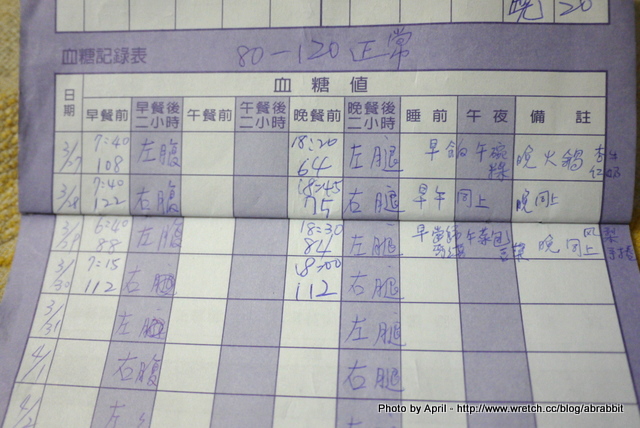 晚 20
血糖記錄表 80-120正常
血糖值
日期 早餐前 早餐後二小時 午餐前 午餐後二小時 晚餐前 晚餐後二小時 睡前 午夜 備註
3/27 7:40 108 左腹 18:20 64 左腿 早 午 晚火鍋
3/28 7:40 122 右腹 18:45 75 右腿 早午同上 晚同上
3/29 6:40 88 左腹 18:30 84 左腿 早 午 晚同上
3/30 7:15 112 右腿 18:00 112 右腿
3/31 左腿 左腿
4/1 右腹 右腿
4/2 左
Photo by April - http://www.wretch.cc/blog/abrabbit